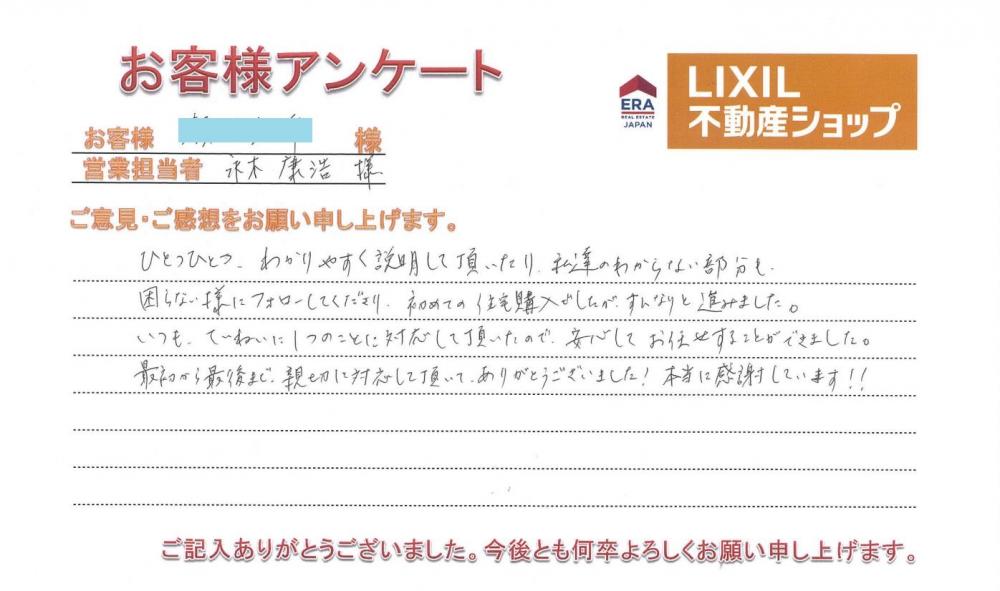 お客様アンケート
ERA
REAL ESTATE
JAPAN
LIXIL
不動産ショップ
お客様 様
営業担当者 永木 康浩 様
ご意見・ご感想をお願い申し上げます。
ひとつひとつ、わかりやすく説明して頂いたり、私達のわからない部分も、
困らない様にフォローしてくださり、初めての住宅購入でしたが、すんなりと進みました。
いつも、ていねいに1つのことに対応して頂いたので、安心してお任せすることができました。
最初から最後まで、親切に対応して頂いて、ありがとうございました！本当に感謝しています！！
ご記入ありがとうございました。今後とも何卒よろしくお願い申し上げます。